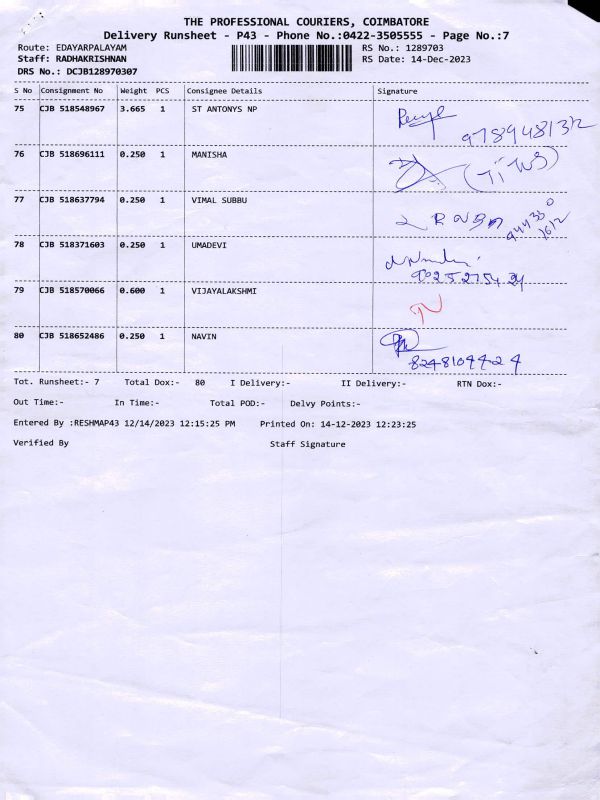 THE PROFESSIONAL COURIERS, COIMBATORE
Delivery Runsheet - P43 - Phone No.:0422-3505555 - Page No.:7
Route: EDAYARPALAYAM RS No.: 1289703
Staff: RADHAKRISHNAN RS Date: 14-Dec-2023
DRS No.: DCJB128970307
S No Consignment No Weight PCS Consignee Details Signature
75 CJB 518548967 3.665 1 ST ANTONYS NP
9789481312
76 CJB 518696111 0.250 1 MANISHA
77 CJB 518637794 0.250 1 VIMAL SUBBU
78 CJB 518371603 0.250 1 UMADEVI
79 CJB 518570066 0.600 1 VIJAYALAKSHMI
80 CJB 518652486 0.250 1 NAVIN
8248104424
Tot. Runsheet:- 7 Total Dox:- 80 I Delivery:- II Delivery:- RTN Dox:-
Out Time:- In Time:- Total POD:- Delvy Points:-
Entered By :RESHMAP43 12/14/2023 12:15:25 PM Printed On: 14-12-2023 12:23:25
Verified By Staff Signature